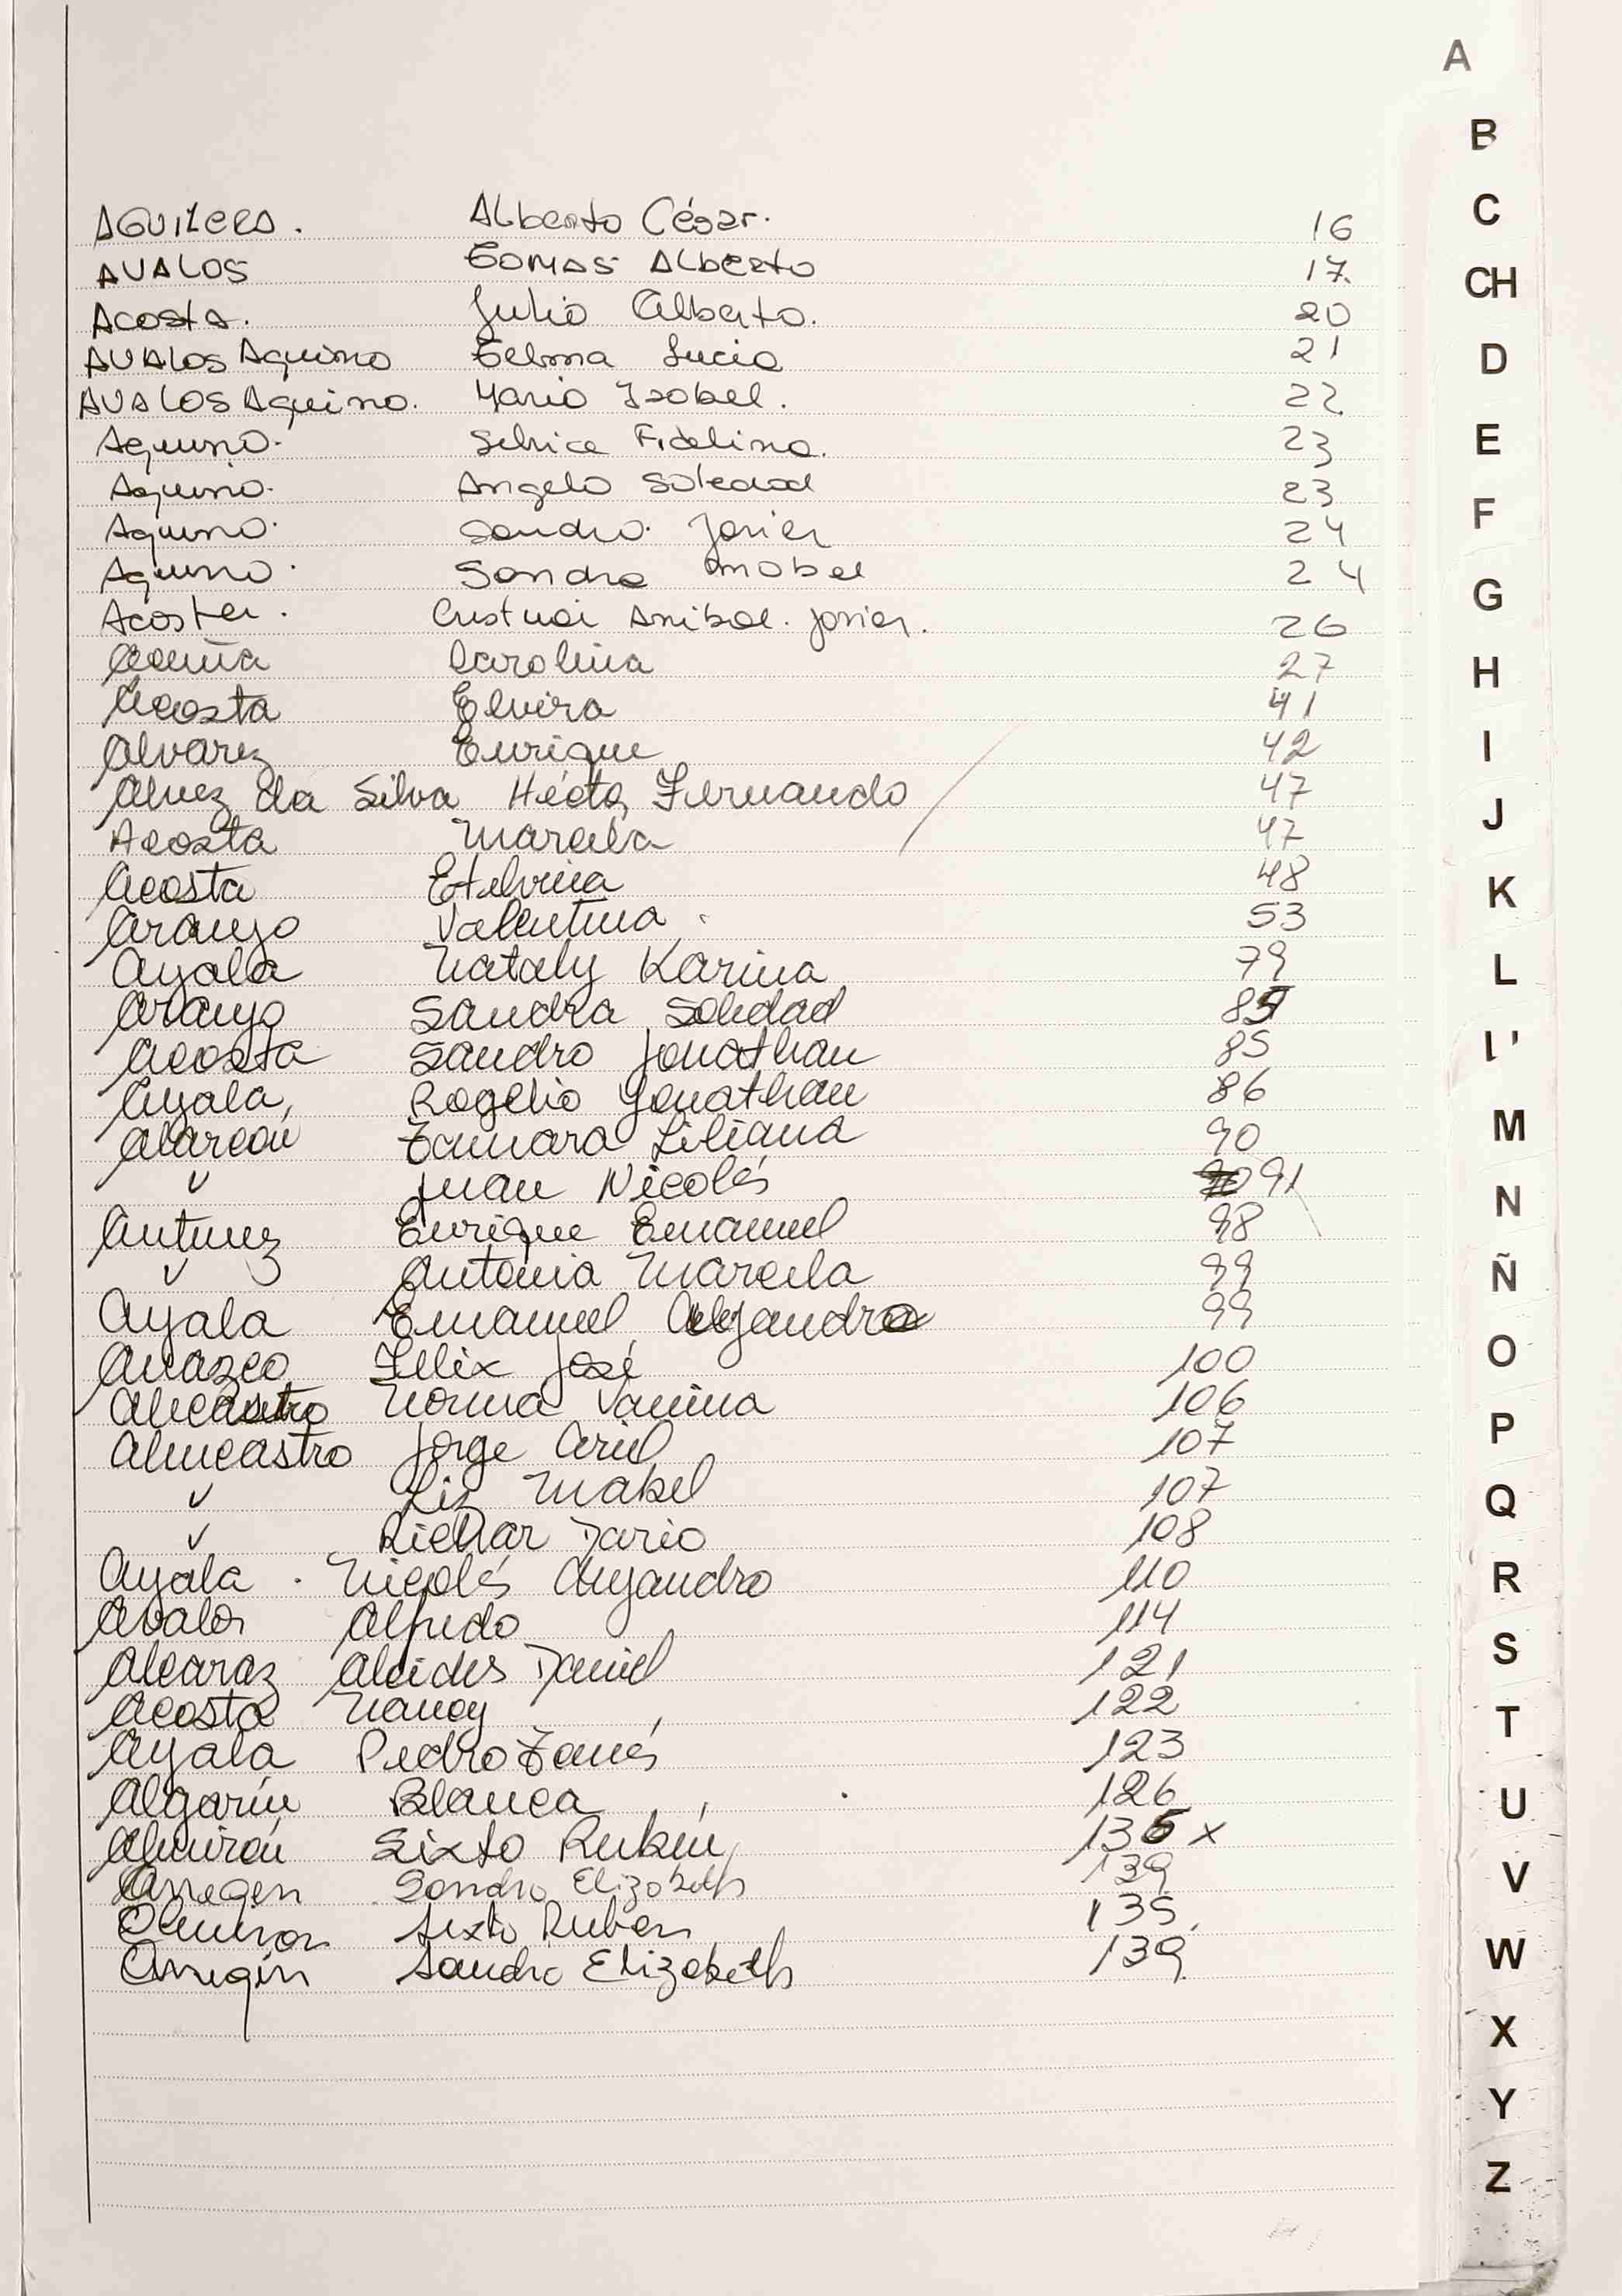 AGUILERA. Alberto César. 16
AVALOS TOMAS ALBERTO 17.
Acosta. Julio Alberto. 20
AVALOS Aquino Telma Lucia 21
AVALOS Aquino. Maria Isabel. 22
Aquino. Fidelina. 23
Aquino. Angela Soledad 23
Aquino. Sandro. Javier 24
Aquino. Sandra Mabel 24
Acosta. Cristian Anibal. Javier. 26
Acuña Carolina 27
Acosta Elvira 41
Alvarez Enrique 42
Alvez da Silva Héctor Fernando 47
Acosta Marcela 47
Acosta Etelvina 48
Araujo Valentina 53
Ayala Nataly Karina 79
Araujo Sandra Soledad 85
Acosta Sandro Jonathan 85
Ayala, Rogelio Yonathan 86
Alarcón Tamara Liliana 90
v Juan Nicolás 91
Antunez Enrique Emanuel 98
v Antonia Marcela 99
Ayala Emanuel Alejandro 99
Anazco Félix José 100
Norma Vanina 106
Almeastro Jorge Ariel 107
v Liz Mabel 107
v Richar Dario 108
Ayala . Nicolás Alejandro 110
Avalos Alfredo 114
Alcaraz Alcides Daniel 121
Acosta Nancy 122
Ayala Pedro Tomás 123
Algarín Blanca 126
Almirón Sixto Rubén 135 x
Arregin Sandra Elizabeth 139
Almiron Sixto Ruben 135.
Arregin Sandra Elizabeth 139.
A
B
C
CH
D
E
F
G
H
I
J
K
L
M
N
Ñ
O
P
Q
R
S
T
U
V
W
X
Y
Z